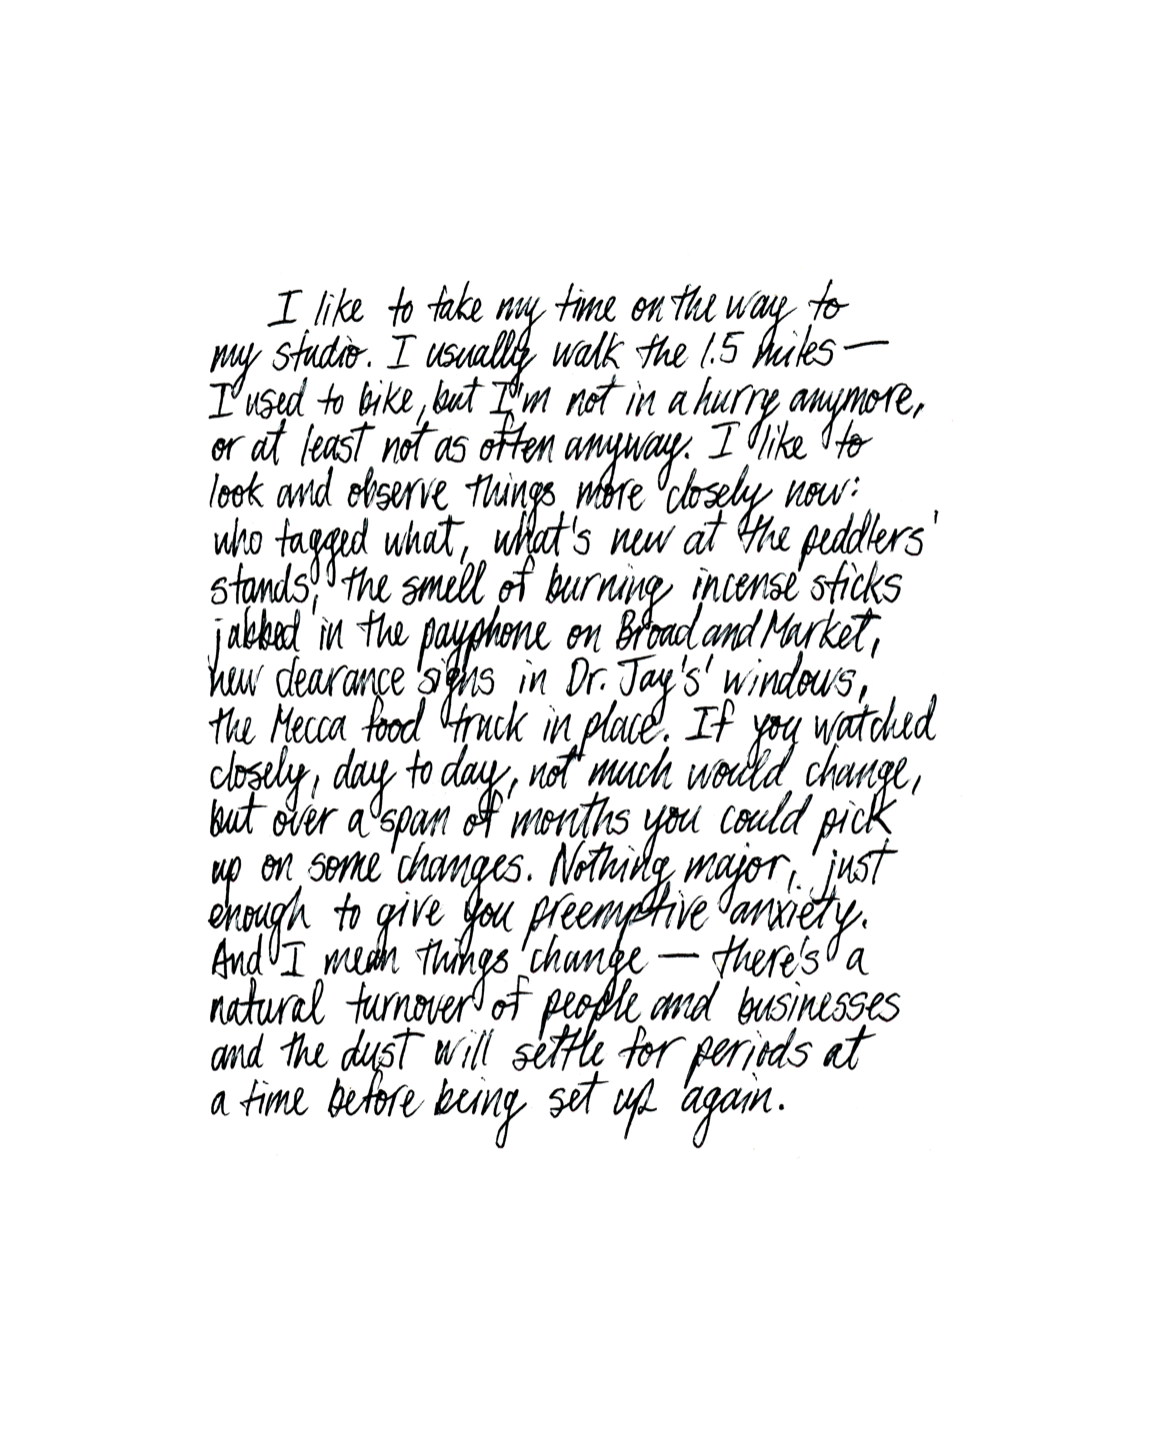 I like to take my time on the way to
my studio. I usually walk the 1.5 miles —
I used to bike, but I'm not in a hurry anymore,
or at least not as often anyway. I like to
look and observe things more closely now:
who tagged what, what's new at the peddlers'
stands, the smell of burning incense sticks
jabbed in the payphone on Broad and Market,
new clearance signs in Dr. Jay's' windows,
the Mecca food truck in place. If you watched
closely, day to day, not much would change,
but over a span of months you could pick
up on some changes. Nothing major, just
enough to give you preemptive anxiety.
And I mean things change — there's a
natural turnover of people and businesses
and the dust will settle for periods at
a time before being set up again.